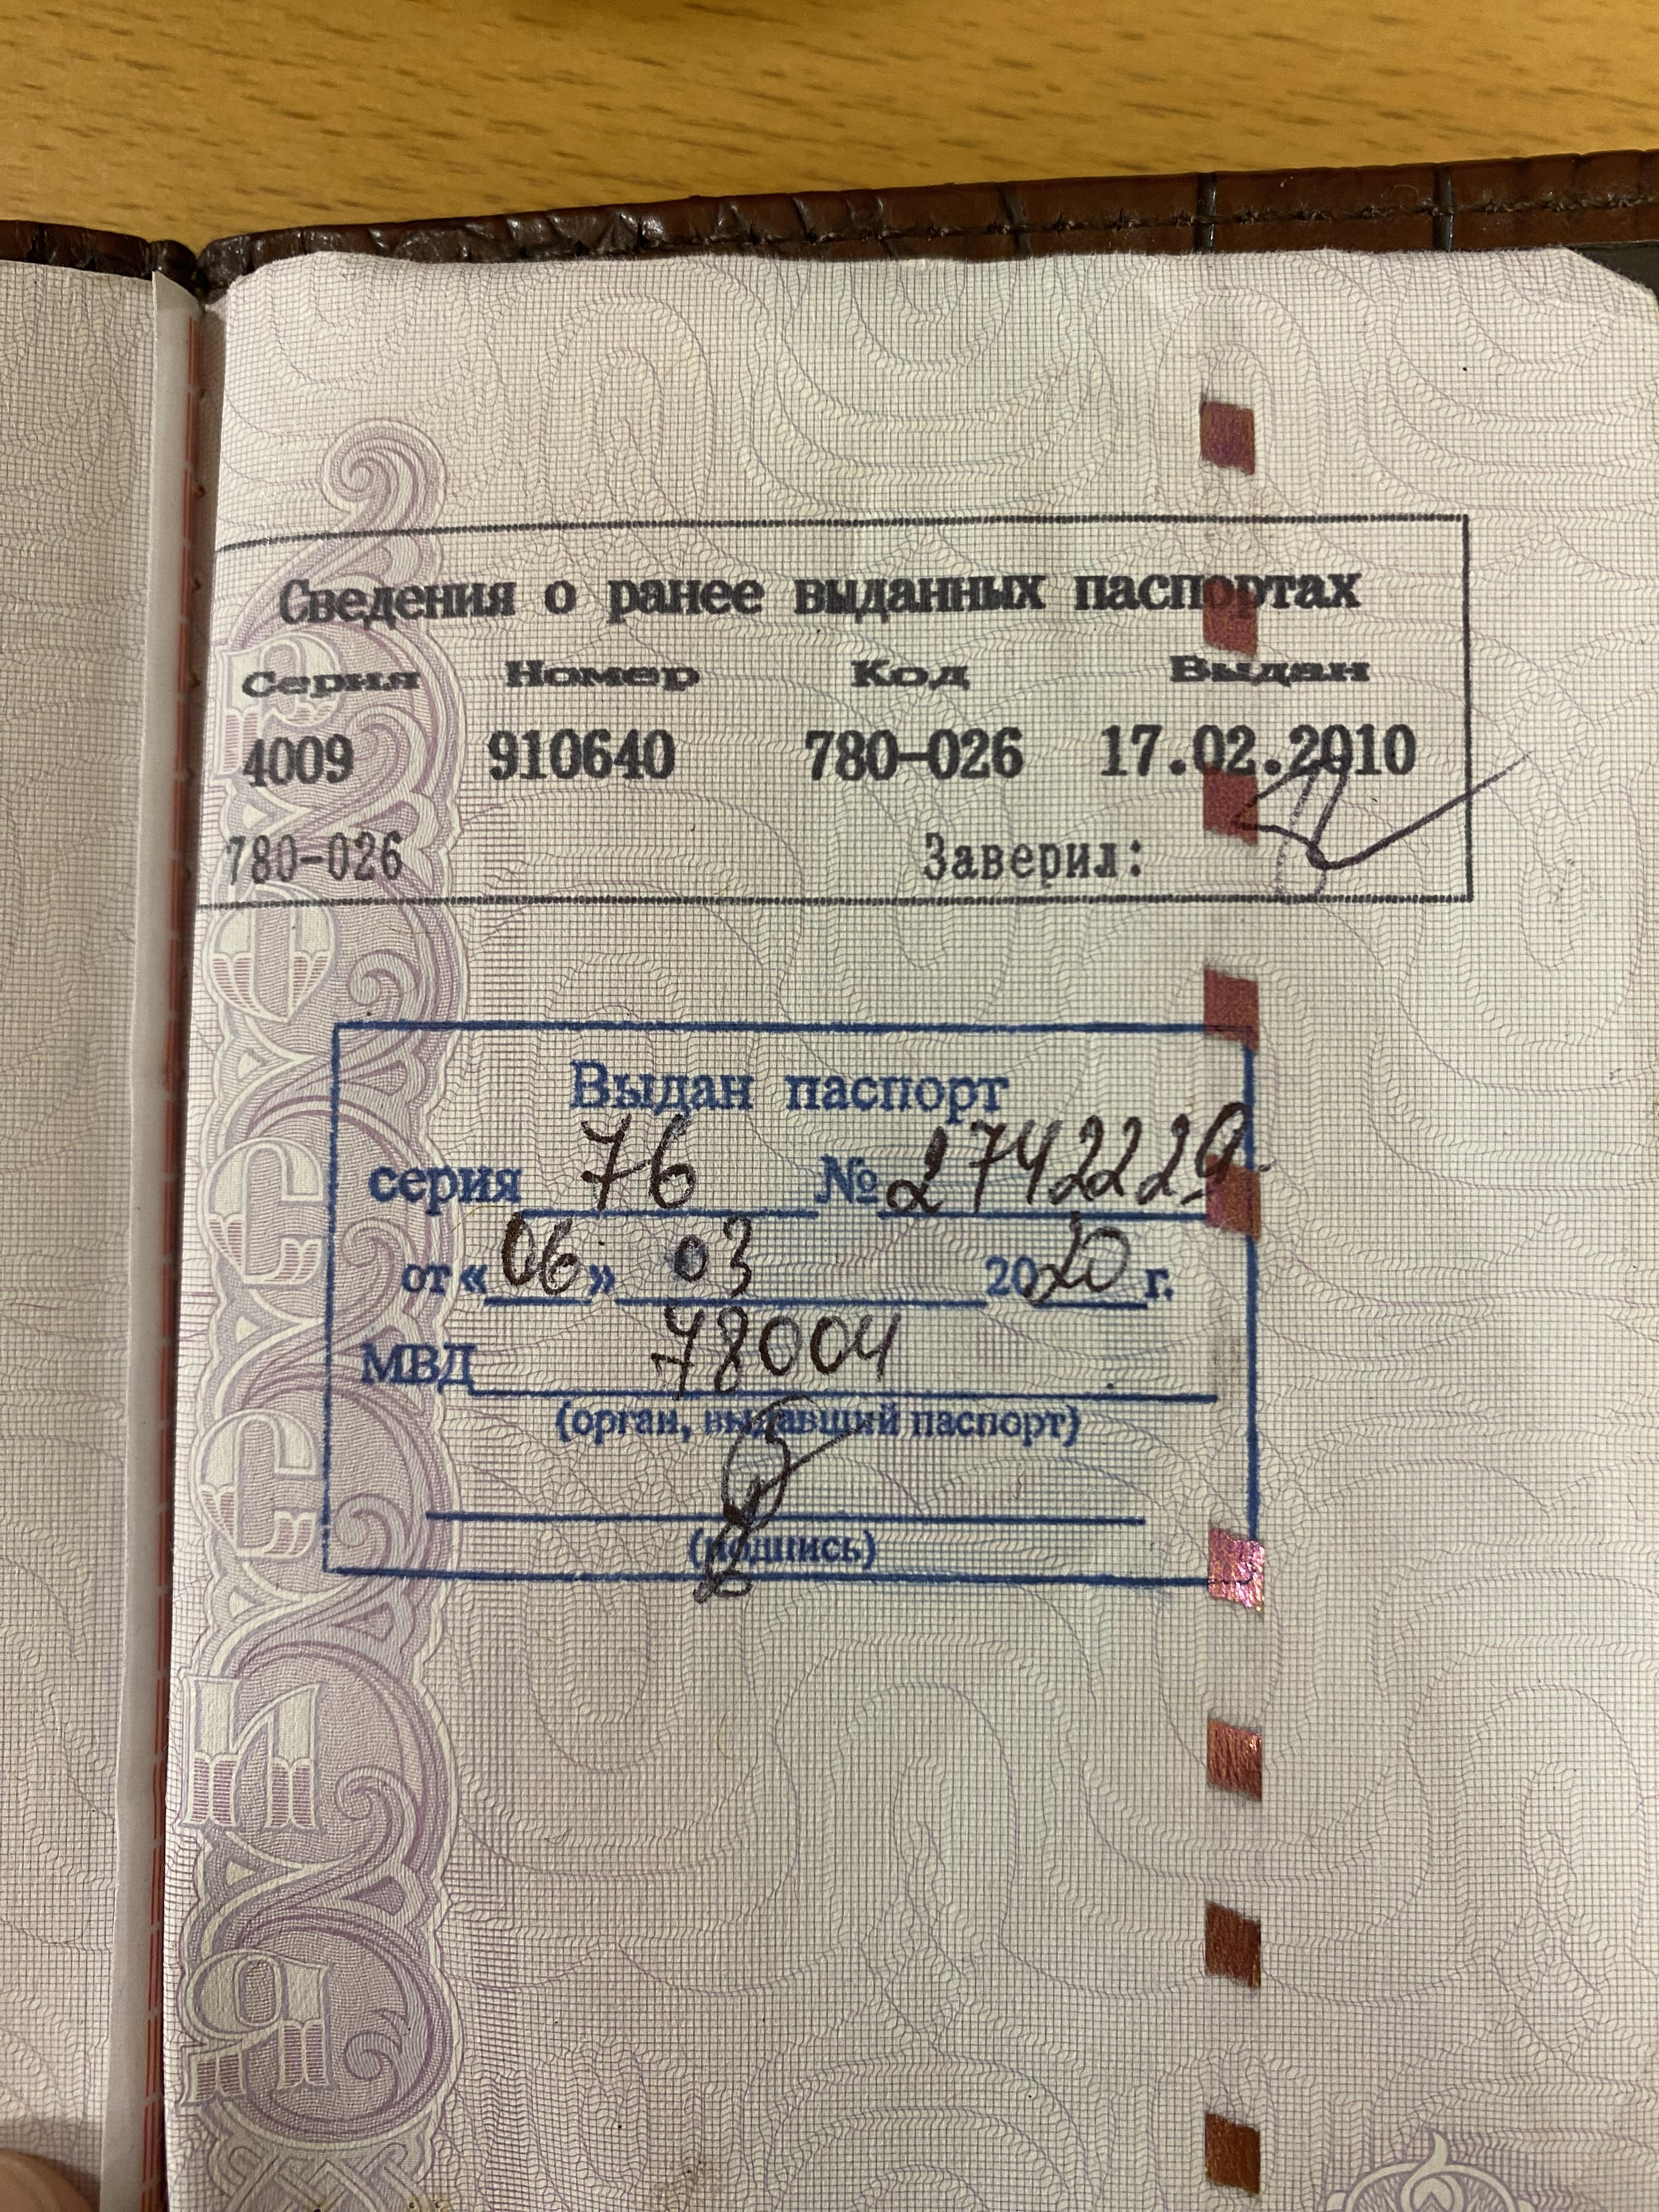 Сведения о ранее выданных паспортах
Серия Номер Код Выдан
4009 910640 780-026 17.02.2010
780-026 Заверил:
Выдан паспорт
серия 76 № 2742229
от «06» 03 2020 г.
МВД 78004
(орган, выдавший паспорт)
(подпись)
РОССИЯ